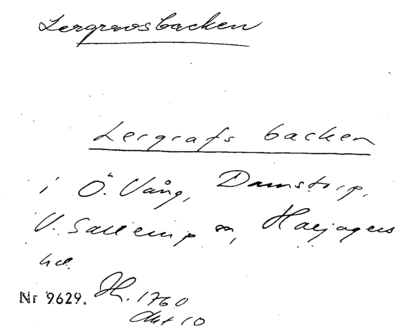 Lergravsbacken
Lergrafs backen
i Ö. Vång, Damstorp,
V. Sallerup sn, Harjagers
hd.
Nr 9629. Hl. 1760
Akt 10